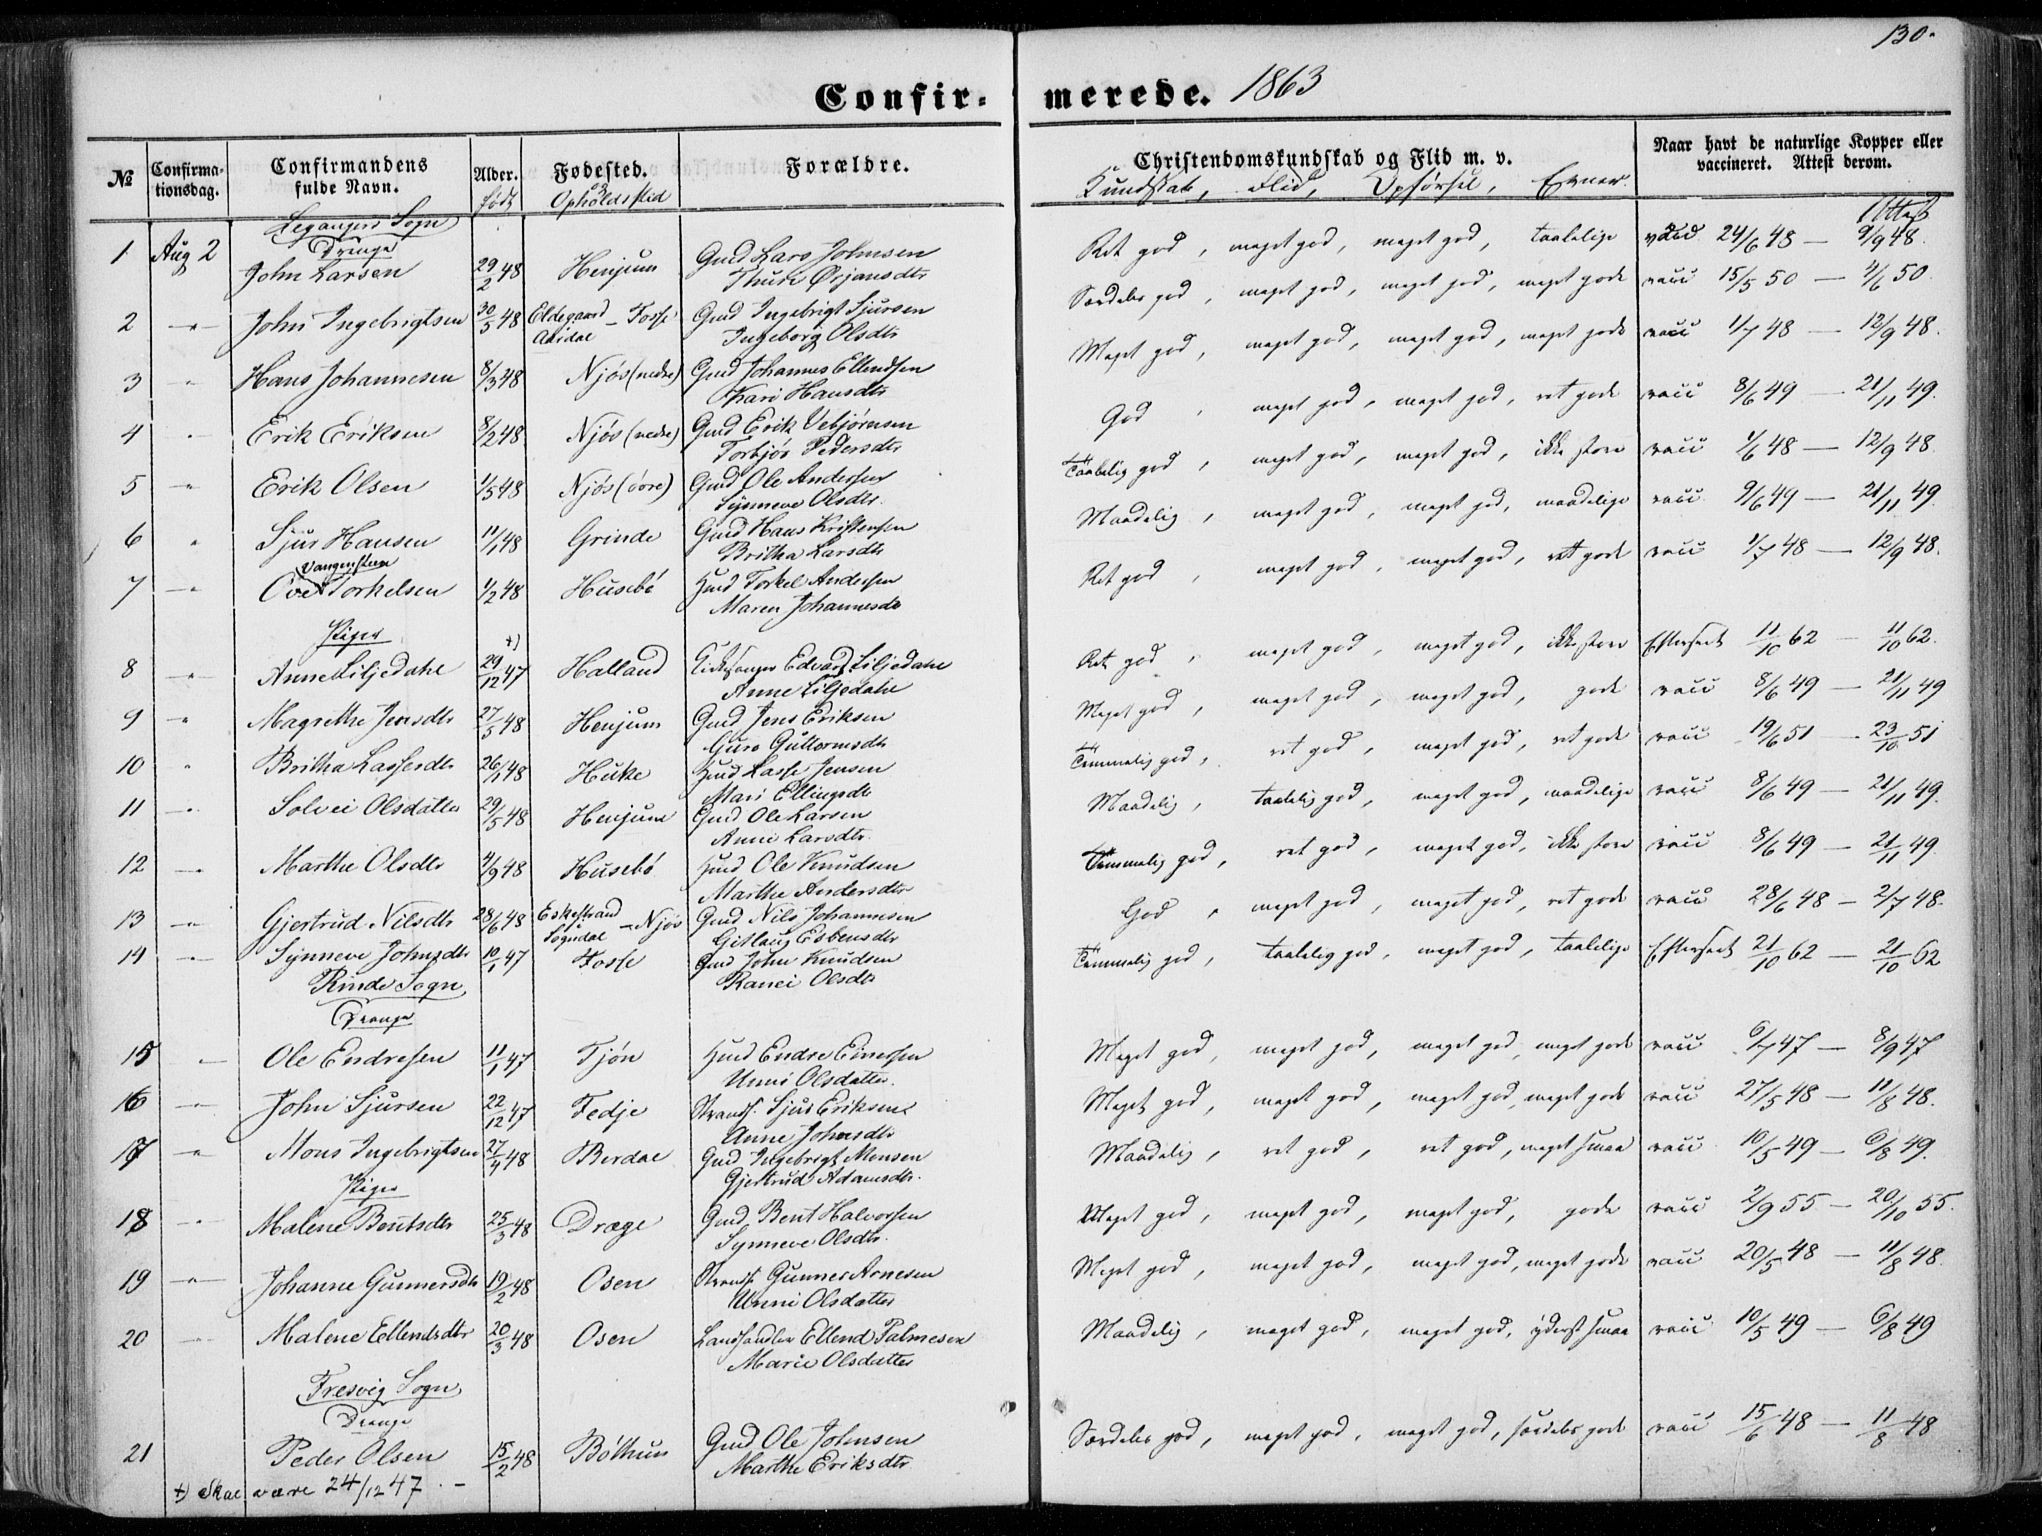 130.
Confirmerede. 1863
№ Confirmationsdag. Confirmandens fulde Navn. Alder. født Fødested. og Opholdssted Forældre. Christendomskundskab og Flid m. v. Kundskab, Flid, Opførsel, Evner. Naar havt de naturlige Kopper eller vaccineret. Attest derom.
Leganger Sogn Attest
Drenge
1 Aug 2 John Larsen 29/2 48 Henjum Gmd Lars Johnsen Ret god, meget god, meget god, taalelige vacc 24/6 48 — 9/9 48.
Thure Ørjansdtr
2 -"- John Ingebrigtsen 30/5 48 Eldegaard Aardal - Fosse Gmd Ingebrigt Sjursen Særdeles god, meget god, meget god, meget gode vacc 15/5 50 — 4/6 50.
Ingeborg Olsdtr
3 " Hans Johannesen 8/3 48 Njøs (nedre) Gmd Johannes Ellendsen Meget god, meget god, meget god, meget gode vacc 1/7 48 — 12/9 48.
Kari Hansdtr
4 " Erik Eriksen 8/2 48 Njøs (nedre) Gmd Erik Vebjørnsen God, meget god, meget god, ret gode vacc 8/6 49 — 21/11 49.
Torbjør Pedersdtr
5 " Erik Olsen 1/5 48 Njøs (øvre) Gmd Ole Andersen Taalelig god, meget god, meget god, ikke store vacc 1/6 48 — 12/9 48.
Synneve Olsdtr.
6 " Sjur Hansen 11/1 48 Grinde Gmd Hans Kristensen Maadelig, meget god, meget god, maadelige vacc 9/6 49 — 21/11 49.
Britha Larsdtr
Vangensteen
7 -"- Ove Torkelsen 1/2 48 Husebø Hmd Torkel Andersen Ret god, meget god, meget god, ret gode vacc 1/7 48 — 12/9 48.
Maren Johannesdr
Piger
+)
8 -"- Anne Liljedahl 29/12 47 Halland Kirkesanger Edvard Liljedahl Ret god, meget god, meget god, ikke store Efterseet 11/10 62 — 11/10 62.
Anne Liljedahl
9 " Magrethe Jensdtr 27/5 48 Henjum Gmd Jens Eriksen Meget god, meget god, meget god, gode vacc 8/6 49 — 21/11 49
Guro Guttormsdtr
10 " Britha Lassesdtr 26/1 48 Huke Hmd Lasse Jensen Temmelig god, ret god, meget god, ret gode vacc 19/6 51 — 23/10 51
Mari Ellingsdtr
11 " Solvei Olsdatter 29/5 48 Henjum Gmd Ole Larsen Maadelig, taalelig god, meget god, maadelige vacc 8/6 49 — 21/11 49.
Anne Larsdtr.
12 -"- Marthe Olsdtr 4/9 48 Husebø Hmd Ole Knudsen Temmelig god, ret god, meget god, ikke store vacc 8/6 49 — 21/11 49.
Marthe Andersdtr
13 -"- Gjertrud Nilsdtr 28/6 48 Eskestrand Sogndal - Njøs Gmd Nils Johannesen God, meget god, meget god, ret gode vacc 28/6 48 — 2/7 48.
Gitlaug Esbensdtr
14 -"- Synneve Johnsdtr 10/1 47 Fosse Gmd John Knudsen Temmelig god, taalelig god, meget god, taalelige Eftersett 21/10 62 — 21/10 62
Ranei Olsdtr
Rinde Sogn
Drenge
15 " Ole Endresen 11/1 47 Tjøn Hmd Endre Einersen Meget god, meget god, meget god, meget gode vacc 6/7 47 — 8/9 47
Unni Olsdatter.
16 -"- John Sjursen 22/12 47 Fedje Strands. Sjur Eriksen Meget god, meget god, meget god, meget gode vacc 27/5 48 — 11/8 48.
Anne Johnsdtr
17 " Mons Ingebrigtsen 27/4 48 Berdal Gmd Ingebrigt Monsen Maadelig, ret god, ret god, meget smaa vacc 10/5 49 — 6/8 49.
Gjertrud Adamsdtr.
Piger
18 " Malene Bentsdtr 25/3 48 Dræge Gmd Bent Halvorsen Meget god, meget god, meget god, gode vacc 2/9 55 — 20/10 55.
Synneve Olsdtr.
19 -"- Johanne Gunnersdtr 19/2 48 Osen Strands. Gunner Arnesen Meget god, meget god, meget god, meget gode vacc 20/5 48 — 11/8 48.
Unni Olsdatter
20 " Malene Ellendsdtr 20/3 48 Osen Landhandler Ellend Palmesen Maadelig, meget god, meget god, yderst smaa vacc 10/5 49 — 6/8 49
Marie Olsdatter
Fresvig Sogn
Drenge
21 Peder Olsen 15/2 48 Bøthun Gmd Ole Johnsen Særdeles god, meget god, meget god, særdeles gode vacc 15/6 48 — 11/8 48
Marthe Eriksdtr
+) Skal være 24/12 47. -